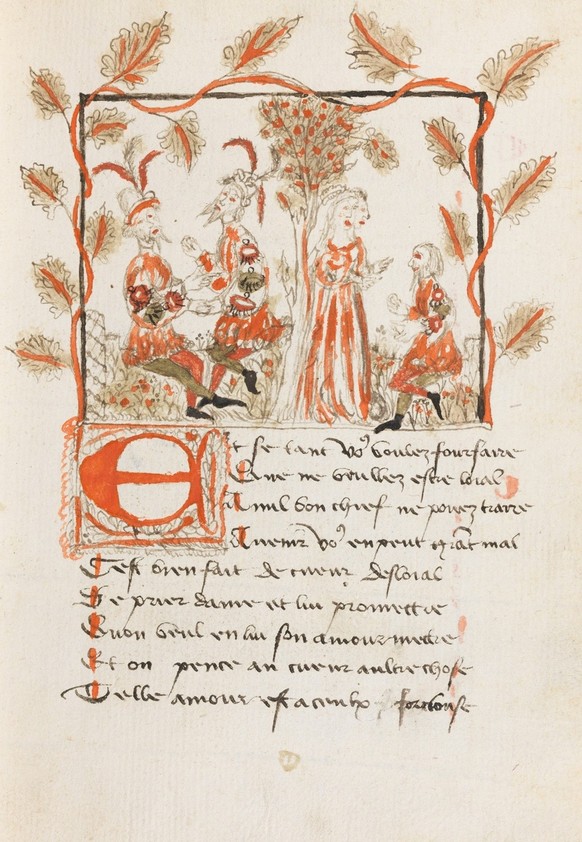 Et se tant vo9 voulez fourfaire
Que ne veullez estre loial
A nul bon chief ne povez traire
Avenir vo9 en peut grãt mal
Cest bien fait de cueur desloial
De prier dame et lui promettre
Quon veul en lui son amour mettre
Et on pence au cueur aultre chose
Telle amour est a ceulx forclouse